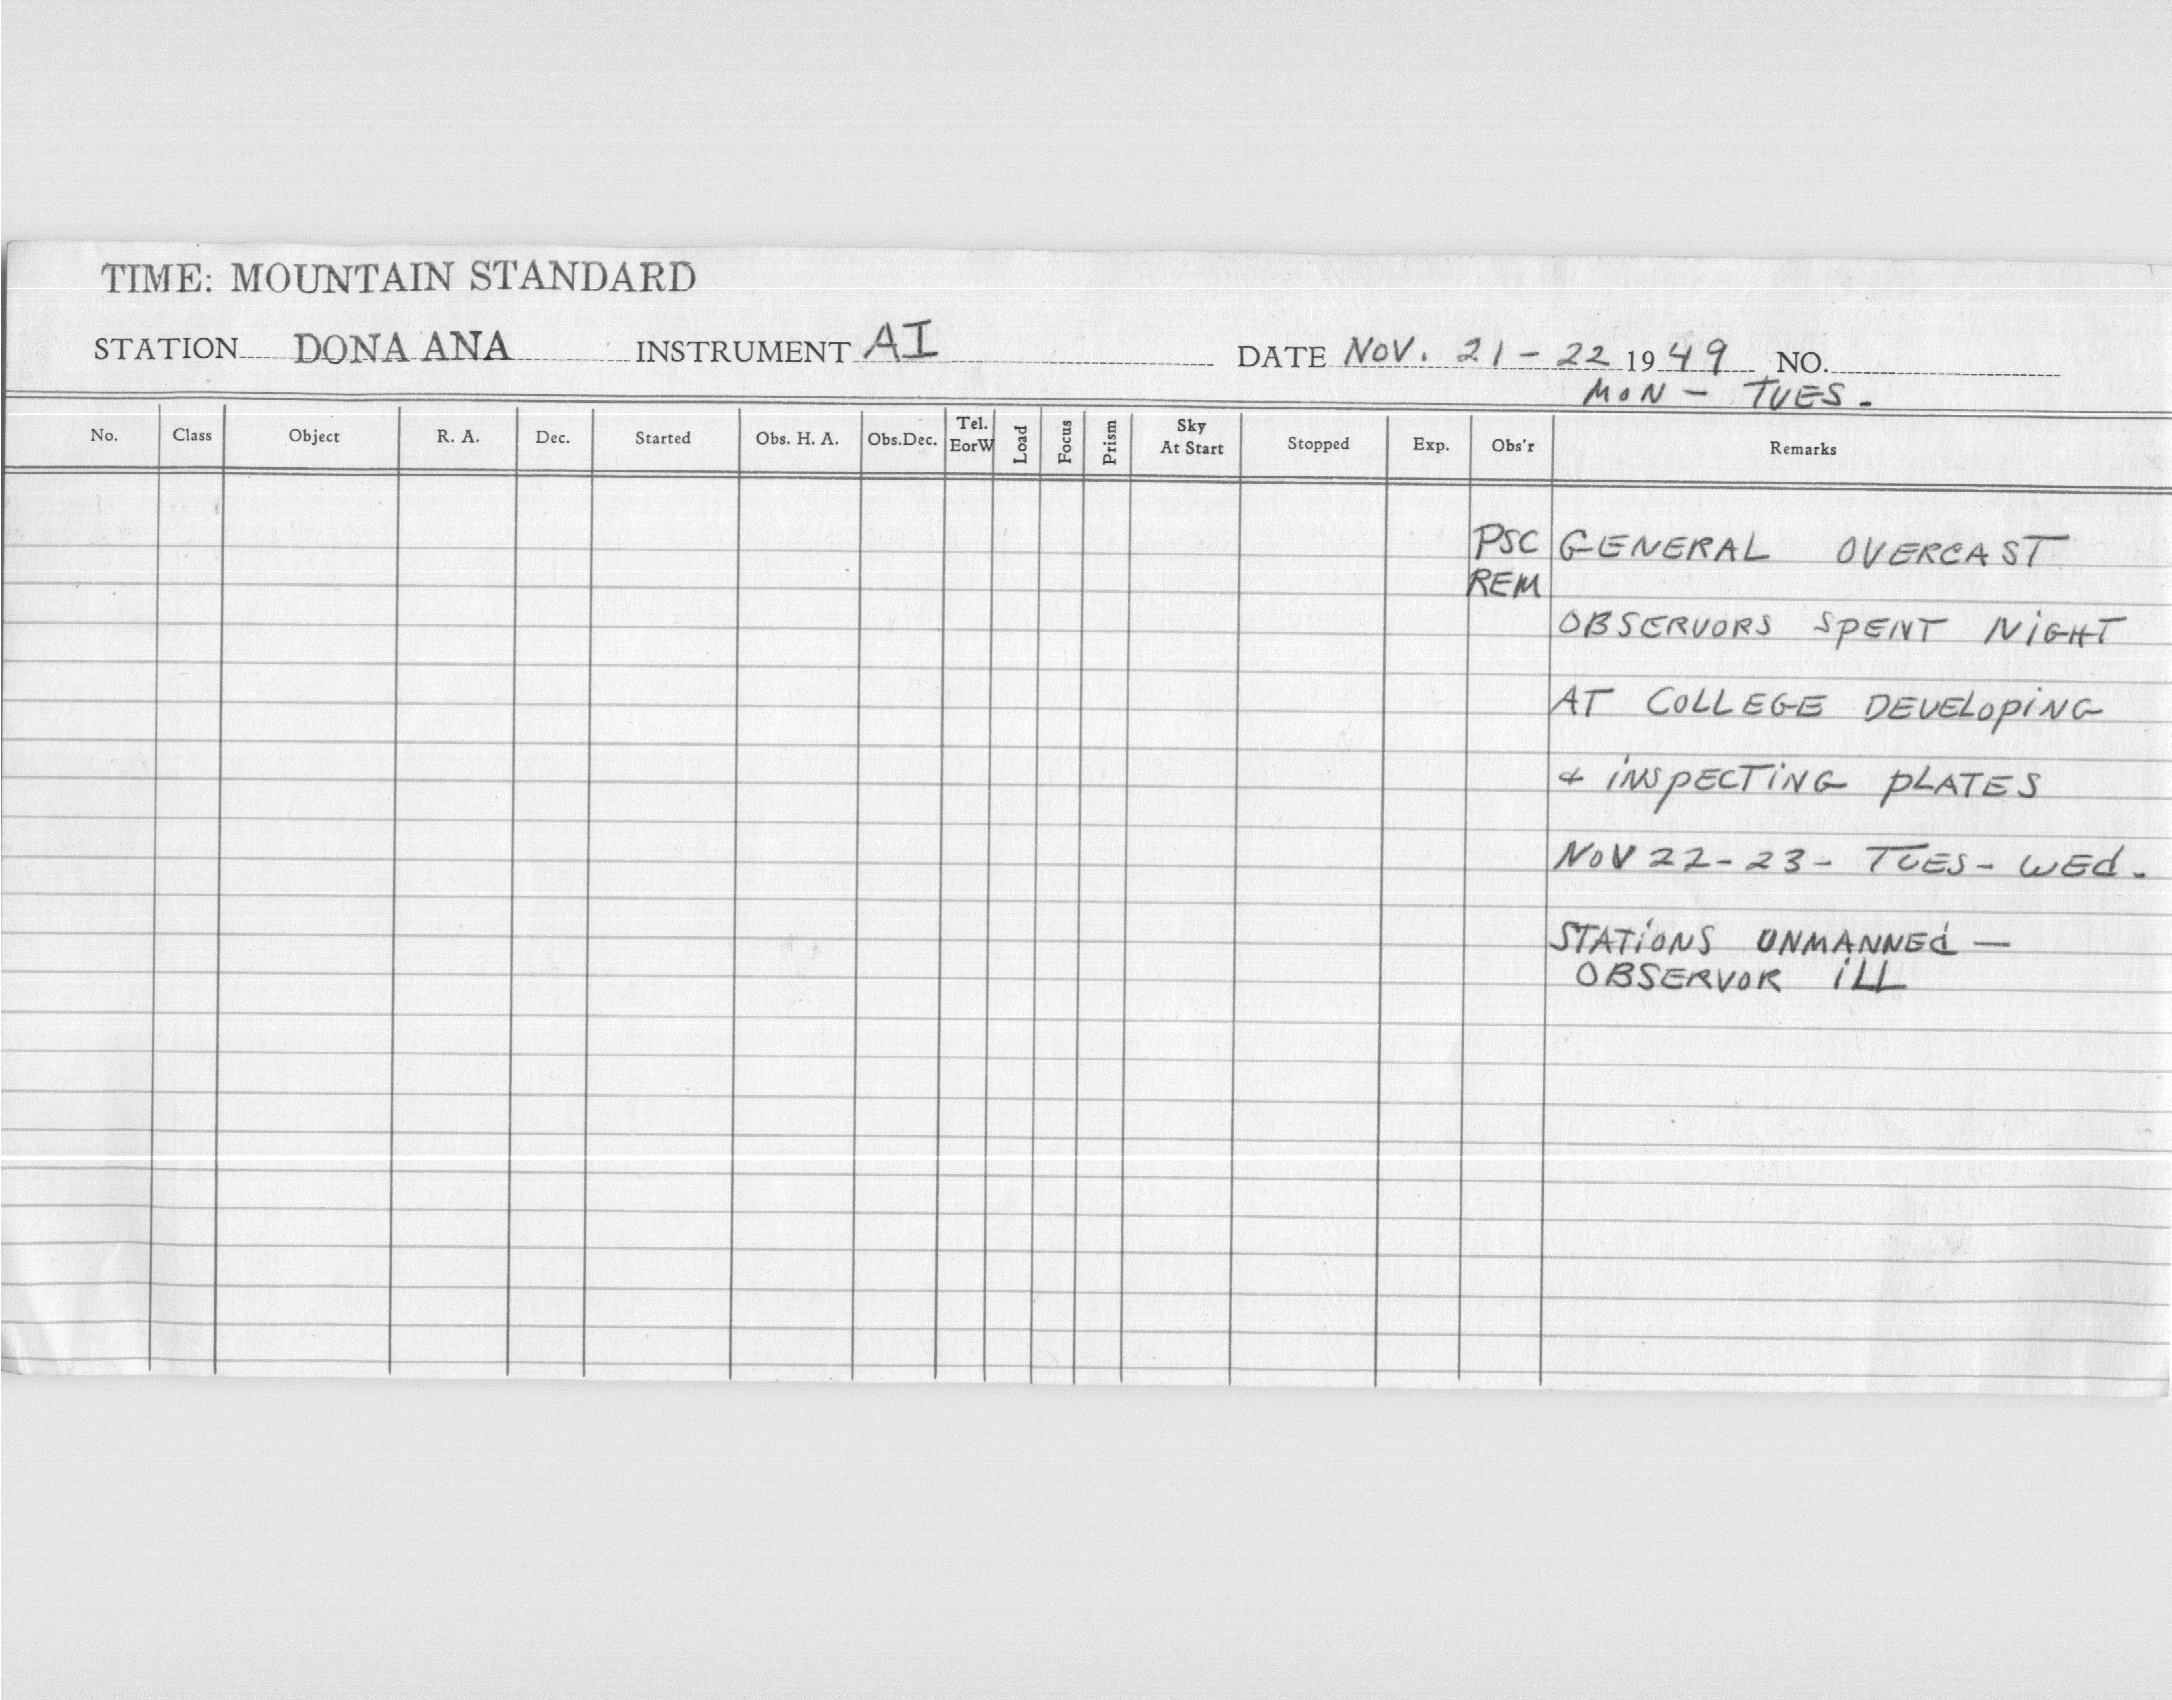 TIME: MOUNTAIN STANDARD
STATION DONA ANA INSTRUMENT AI DATE NOV. 21-22 1949 NO.
MON - TUES.
No. Class Object R. A. Dec. Started Obs. H. A. Obs.Dec. Tel. EorW Load Focus Prism Sky At Start Stopped Exp. Obs'r Remarks
PSC GENERAL OVERCAST
REM
OBSERVORS SPENT NIGHT
AT COLLEGE DEVELOPING
& INSPECTING PLATES
NOV 22-23- TUES- WEd.
STATIONS UNMANNEd —
OBSERVOR ILL